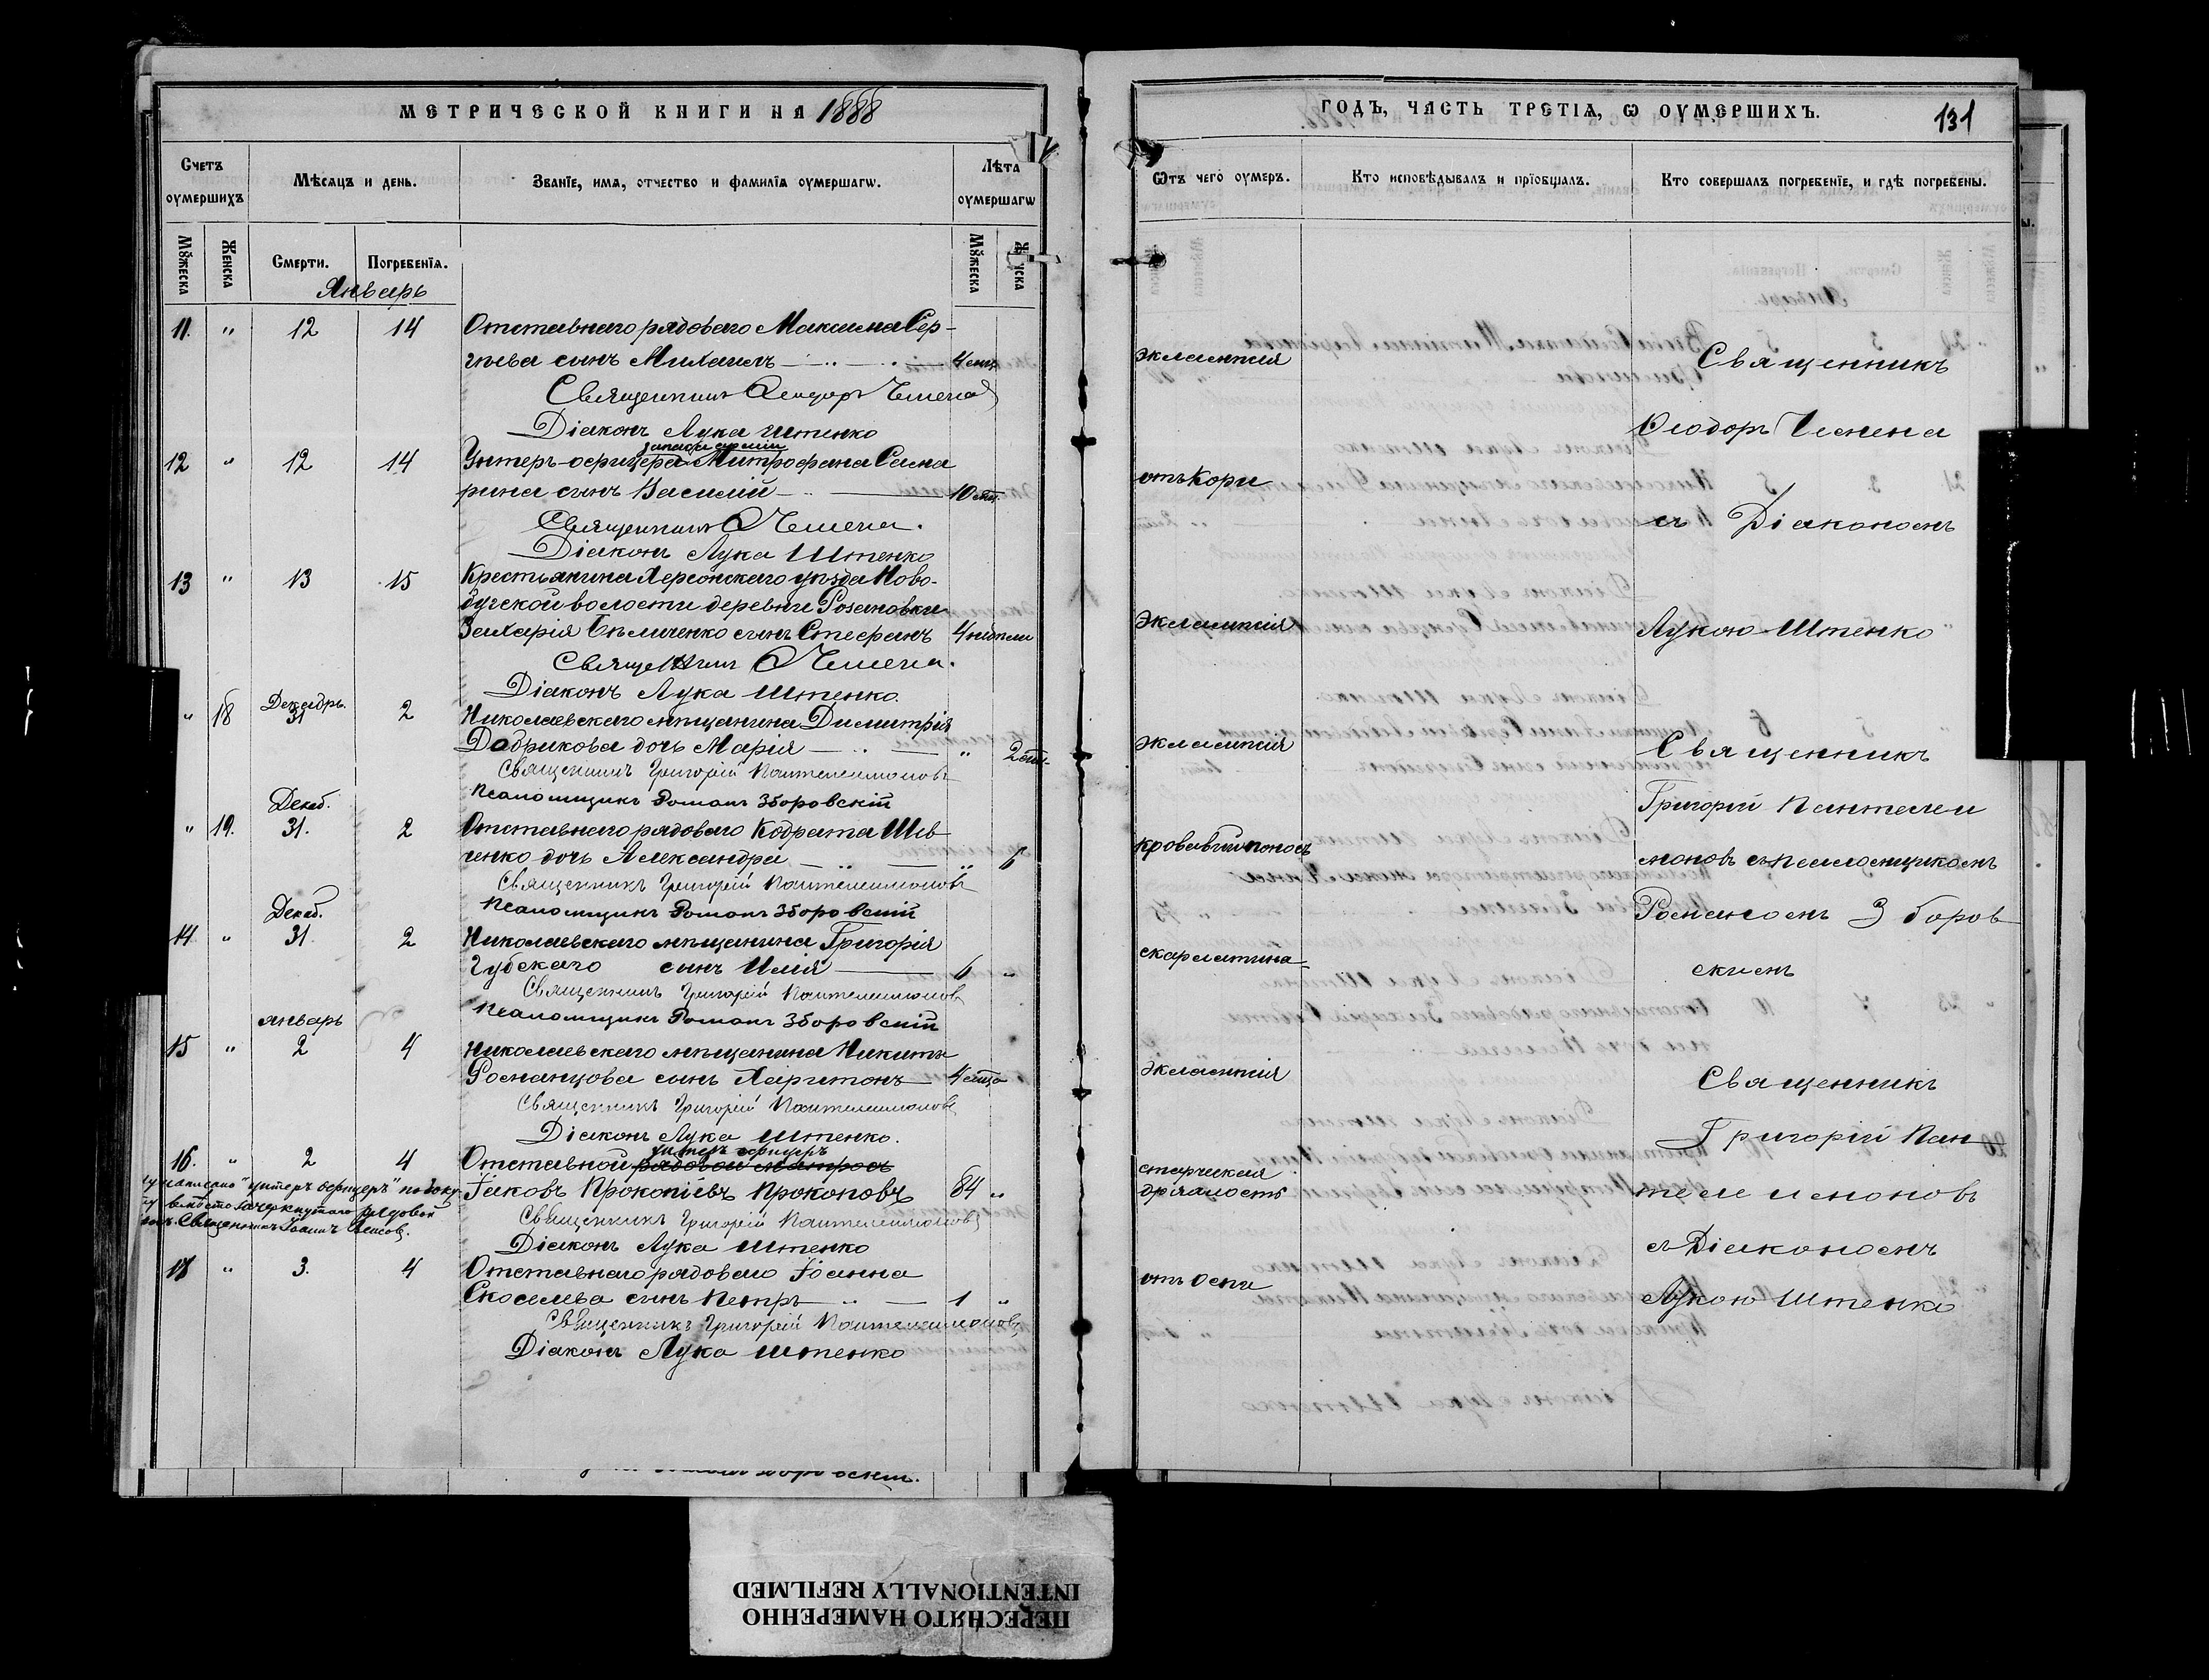 МЕТРИЧЕСКОЙ КНИГИ НА 1888
Счетъ оумершихъ
Мѣсяцъ и день.
Званіе, имя, отчество и фамилія оумершагѡ.
Лѣта оумершагѡ
Мужеска
Женска
Смерти.
Погребенія.
Мужеска
Январь
11. " 12 14 Отставнаго рядоваго Максима Сер-
гѣева сынъ Михаилъ 4 мѣс.
Священникъ Ѳеодоръ Чемена
Діаконъ Лука Штенко
запаса арміи
12 " 12 14 Унтеръ-офицера Митрофана Сама
рина сынъ Василій 10 мѣс.
Священникъ Ѳ Чемена.
Діаконъ Лука Штенко
13 " 13 15 Крестьянина Херсонскаго уѣзда Ново-
бугской волости деревни Розановки
Захарія Бѣличенко сынъ Стефанъ 4 недѣли
Священникъ Ѳ Чемена.
Діаконъ Лука Штенко.
Декабрь.
" 18 31 2 Николаевскаго мѣщанина Димитрія
Добрикова дочь Марія " 2 мѣс.
Священникъ Григорій Пантелеимоновъ
Псаломщикъ Романъ Зборовскій
Декаб.
" 19. 31. 2 Отставнаго рядоваго Кодрата Шев-
ченко дочь Александра " 6
Священникъ Григорій Пантелеимоновъ
Псаломщикъ Романъ Зборовскій
Декаб.
14 " 31. 2 Николаевскаго мѣщанина Григорія
Губскаго сынъ Илія 6 "
Священникъ Григорій Пантелеимоновъ
Псаломщикъ Романъ Зборовскій
январь
15 " 2 4 Николаевскаго мѣщанина Никиты
Романцова сынъ Харитонъ 4 мѣс.
Священникъ Григорій Пантелеимоновъ
Діаконъ Лука Штенко.
унтеръ офицеръ
16. " 2 4 Отставной рядовой матросъ
Іаковъ Прокопіевъ Прокоповъ 84 "
написано "унтеръ офицеръ" по
вмѣсто зачеркнутаго рядовой
Священникъ Іоаннъ
Священникъ Григорій Пантелеимоновъ
Діаконъ Лука Штенко
17 " 3. 4 Отставнаго рядоваго Іоанна
Скоселева сынъ Петръ 1 "
Священникъ Григорій Пантелеимоновъ
Діаконъ Лука Штенко
ГОДЪ, ЧАСТЬ ТРЕТІЯ, Ѡ ОУМЕРШИХЪ.
131
Ѿтъ чего оумеръ.
Кто исповѣдывалъ и пріобщалъ.
Кто совершалъ погребеніе, и гдѣ погребены.
эклампсія
Священникъ
Ѳеодоръ Чемена
отъ Кори
съ Діакономъ
Эклампсія
Лукою Штенко
эклампсія
Священникъ
Григорій Пантелеи
кровавый поносъ
моновъ съ псаломщикомъ
Романомъ Зборов
скарлатина
скимъ
эклампсія
Священникъ
Григорій Пан
старческая
дряхлость
телеимоновъ
съ Діакономъ
отъ Оспы
Лукою Штенко
ПЕРЕСНЯТО НАМЕРЕННО
INTENTIONALLY REFILMED